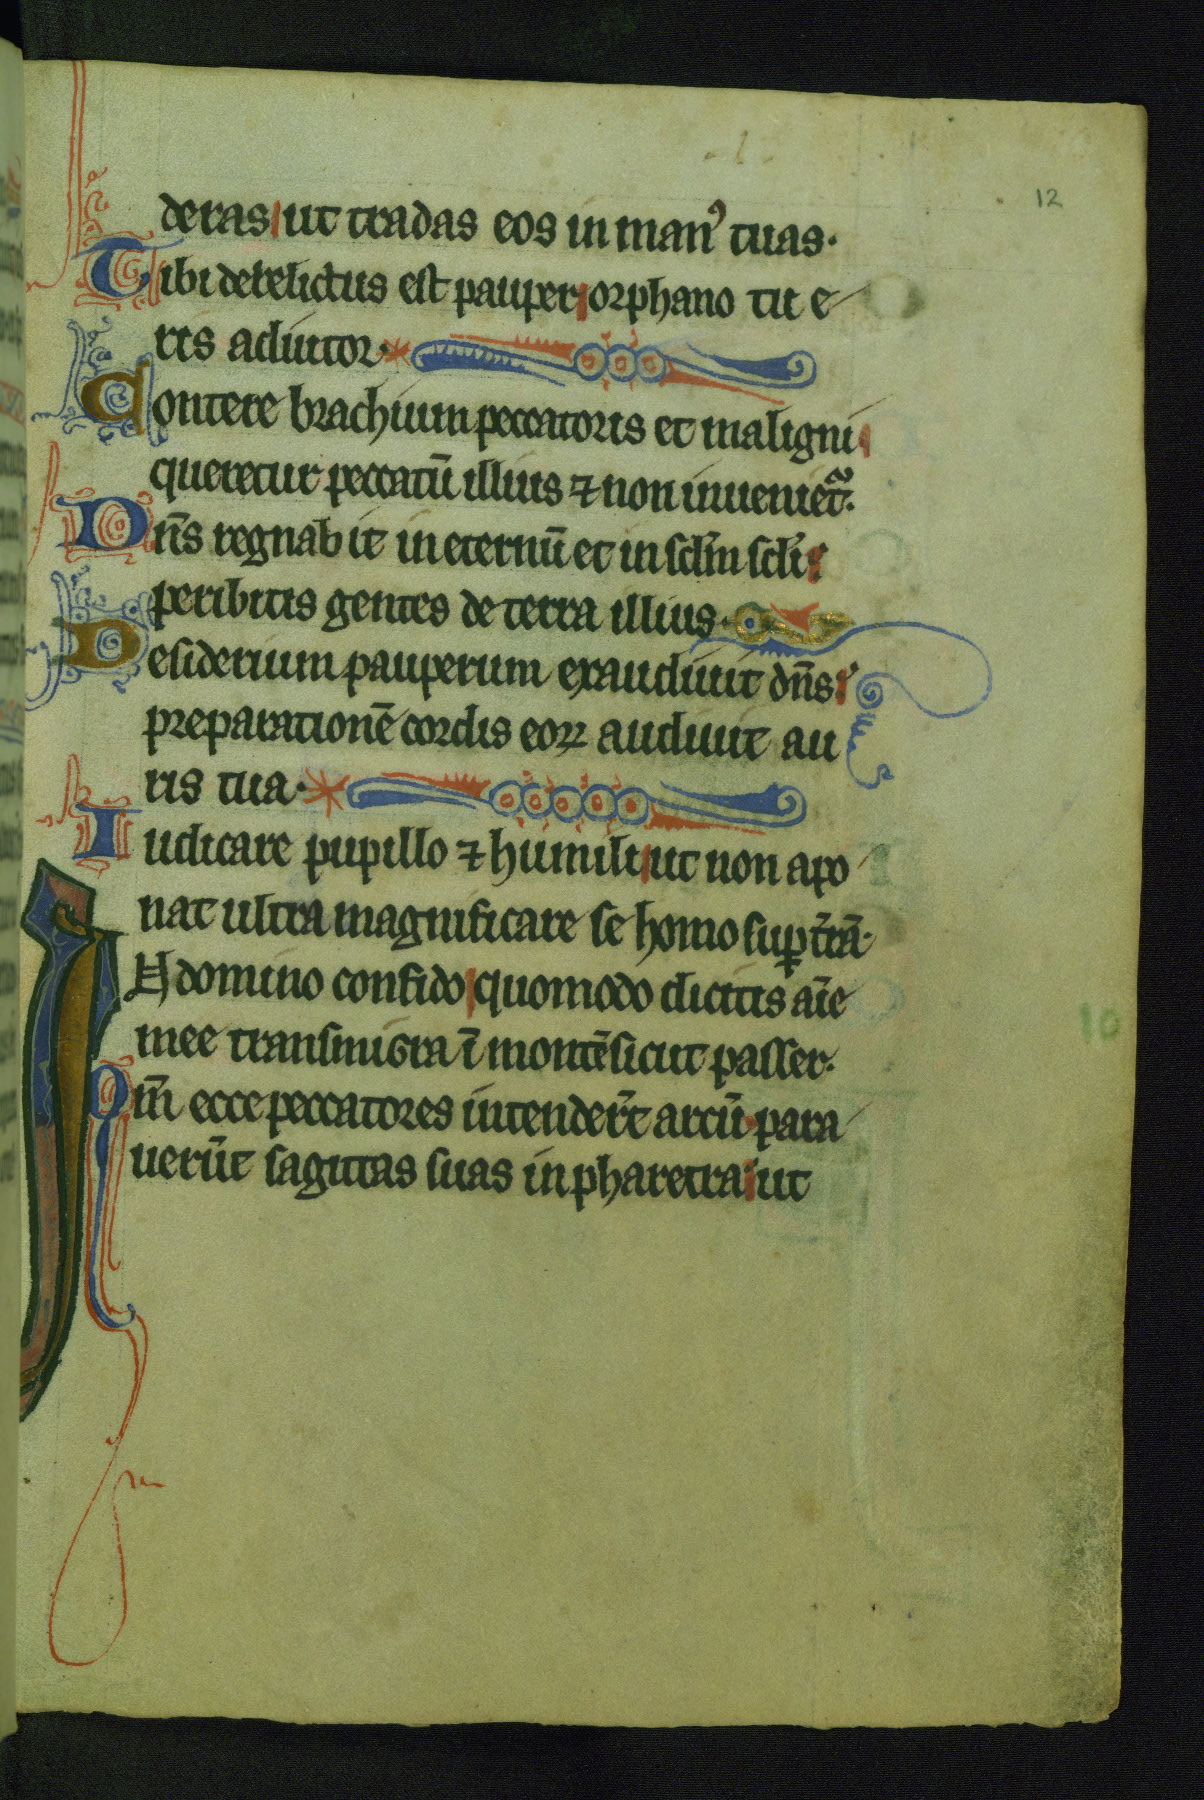 12
deras ut tradas eos in manꝰ tuas.
Tibi derelictus est pauper orphano tu e
ris adiutor.
Contere brachium peccatoris et maligni
queretur peccatū illius ⁊ non inuenietᷓ.
Dn̄s regnabit in eternū et in sclm̄ scli:
peribitis gentes de terra illius.
Desiderium pauperum exaudiuit dn̄s:
preparationē cordis eoꝝ audiuit au
ris tua.
Iudicare pupillo ⁊ humili ut non apo
nat ultra magnificare se homo suꝑ t̄rā.
IN domino confido quomodo dicitis aīe
mee transmigra ī montē sicut passer.
Qm̄ ecce peccatores intender̄t arcū para
uerūt sagittas suas in pharetra: ut
10